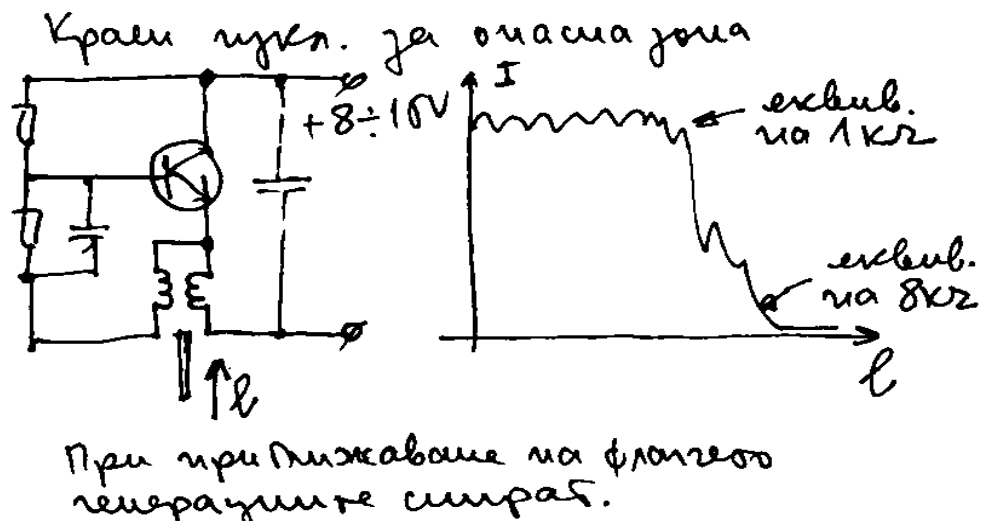 Краен изкл. за опасна зона
+8÷10V
I
еквив.
на 1кг
еквив.
на 8кг
l
l
При приближаване на флагчето
генерациите спират.